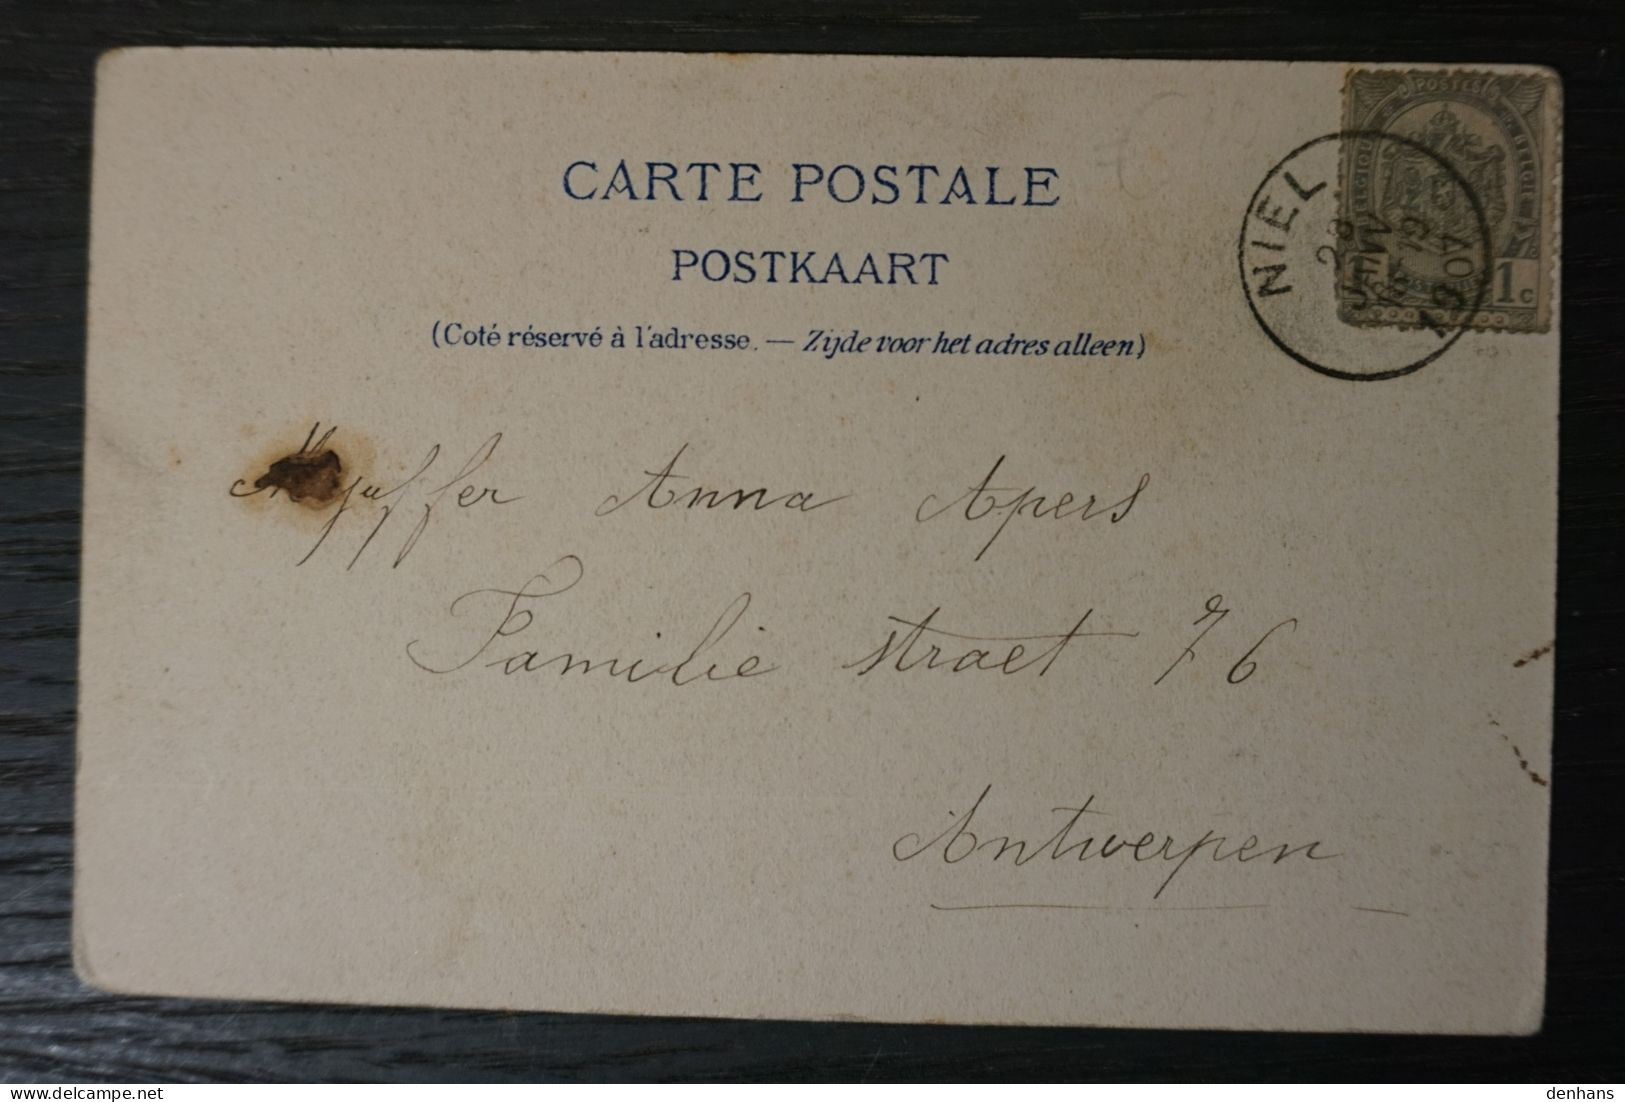 CARTE POSTALE
POSTKAART
(Coté réservé à l'adresse. — Zijde voor het adres alleen)
NIEL
28
JANV
12
POSTES
BELGIE
1c
Mejuffer Anna Apers
Familie straet 76
Antwerpen
delcampe.net
denhans